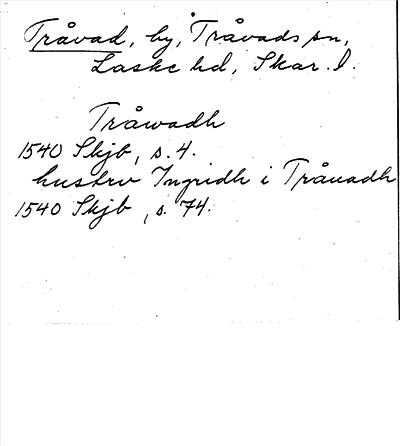 Tråvad, by, Tråvads sn,
Laske hd, Skar. l.
Tråwadh
1540 Skjb, s. 4.
hustrv Ingridh i Tråuadh
1540 Skjb, s. 74.